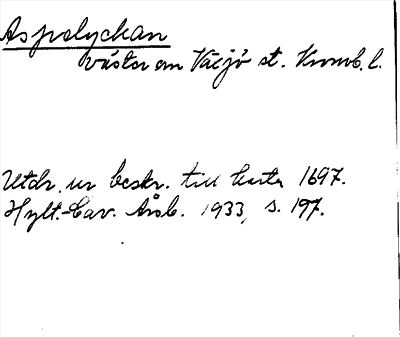 Aspelyckan
väster om Växjö st. Kronob. l.
Utdr. ur beskr. till karta 1697.
Hylt.-Cav. Årsb. 1933, s. 197.